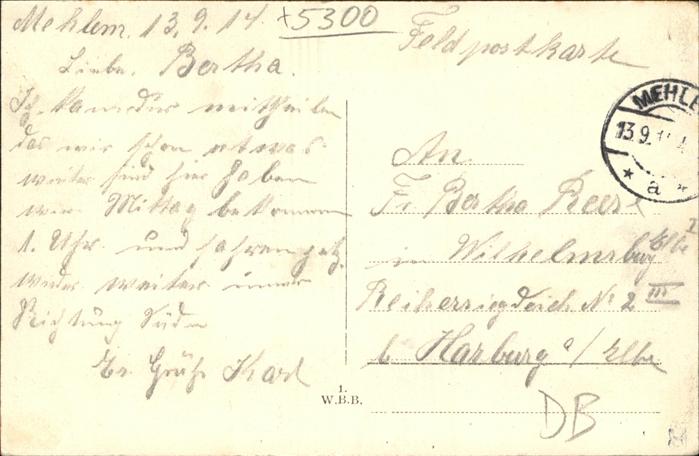 Mehlem. 13.9.14 +5300
Feldpostkarte
Liebe. Bertha.
Ich kann dir mittheilen
das wir schon etwas
weiter sind hier haben
wir Mittag bekommen
1. Uhr. und fahren jetz
wieder weiter immer
Richtung Süden
Es Grüßt Karl
MEHLE
13.9.1
* a *
An
Fr Bertha
in Wilhelmsburg Elbe
No 2 III
b Harburg a/Elbe
1.
W.B.B.
DB